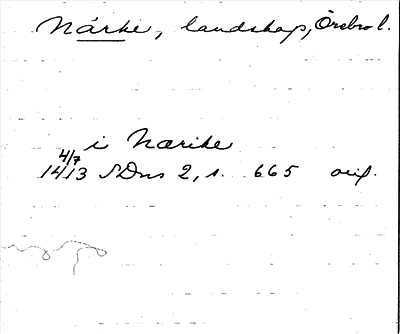 Närke, landskap, Örebro l.
i Narike
4/7
1413 SDns 2, s. 665 orig.